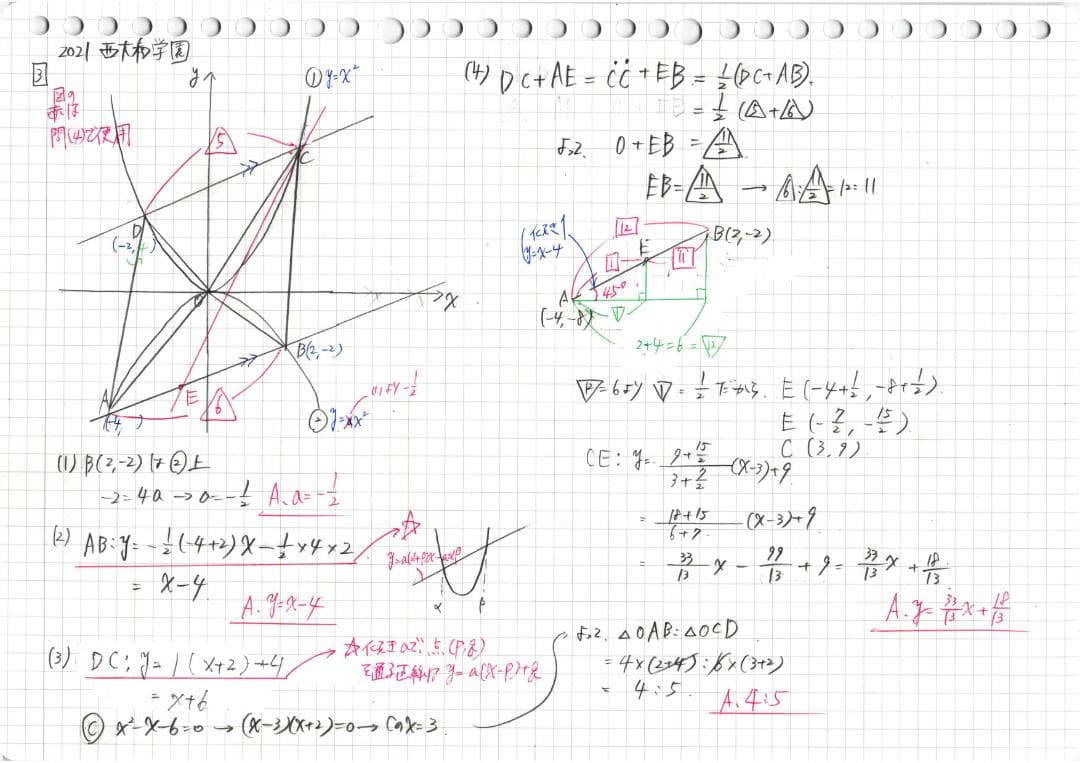 2021 西大和学園
3
図の
赤は
問(4)で使用
y
① y=x²
5
C
D
(-2, 4)
O
x
B(2,-2)
E
A
(-4, )
6
(1)より-1/2
② y=ax²
(1) B(2,-2)は②上
-2=4a→a=-1/2 A. a=-1/2
(2) AB: y=-1/2(-4+2)x-1/2×4×2
= x-4
A. y=x-4
☆
y=a(α+β)x-aαβ
α β
(3) DC: y=1(x+2)+4
= x+6
☆傾きaで点(p,q)
を通る直線は y=a(x-p)+q
Ⓒ x²-x-6=0→(x-3)(x+2)=0→Cのx=3
よって △OAB:△OCD
=4×(2+4):6×(3+2)
= 4:5
A. 4:5
(4) DC+AE=CC+EB=1/2(DC+AB).
=1/2(5+6)
よって 0+EB=11/2
EB=11/2 → 6:11/2=12:11
傾き1
y=x-4
12
1
E
11
B(2,-2)
45°
A
(-4,-8)
1
2+4=6=12
12=6より 1=1/2だから. E(-4+1/2, -8+1/2).
E(-7/2, -15/2).
C(3,9).
CE: y=(9+15/2)/(3+7/2)(x-3)+9
=(18+15)/(6+7)(x-3)+9
=33/13x-99/13+9=33/13x+18/13
A. y=33/13x+18/13